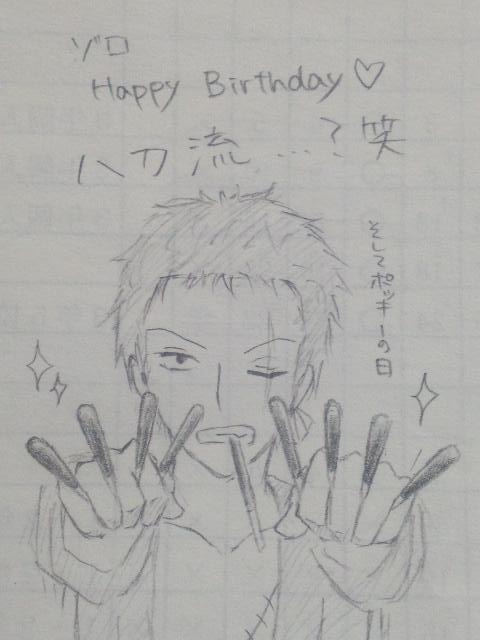 ゾロ
Happy Birthday♡
八刀流…?笑
そしてポッキーの日